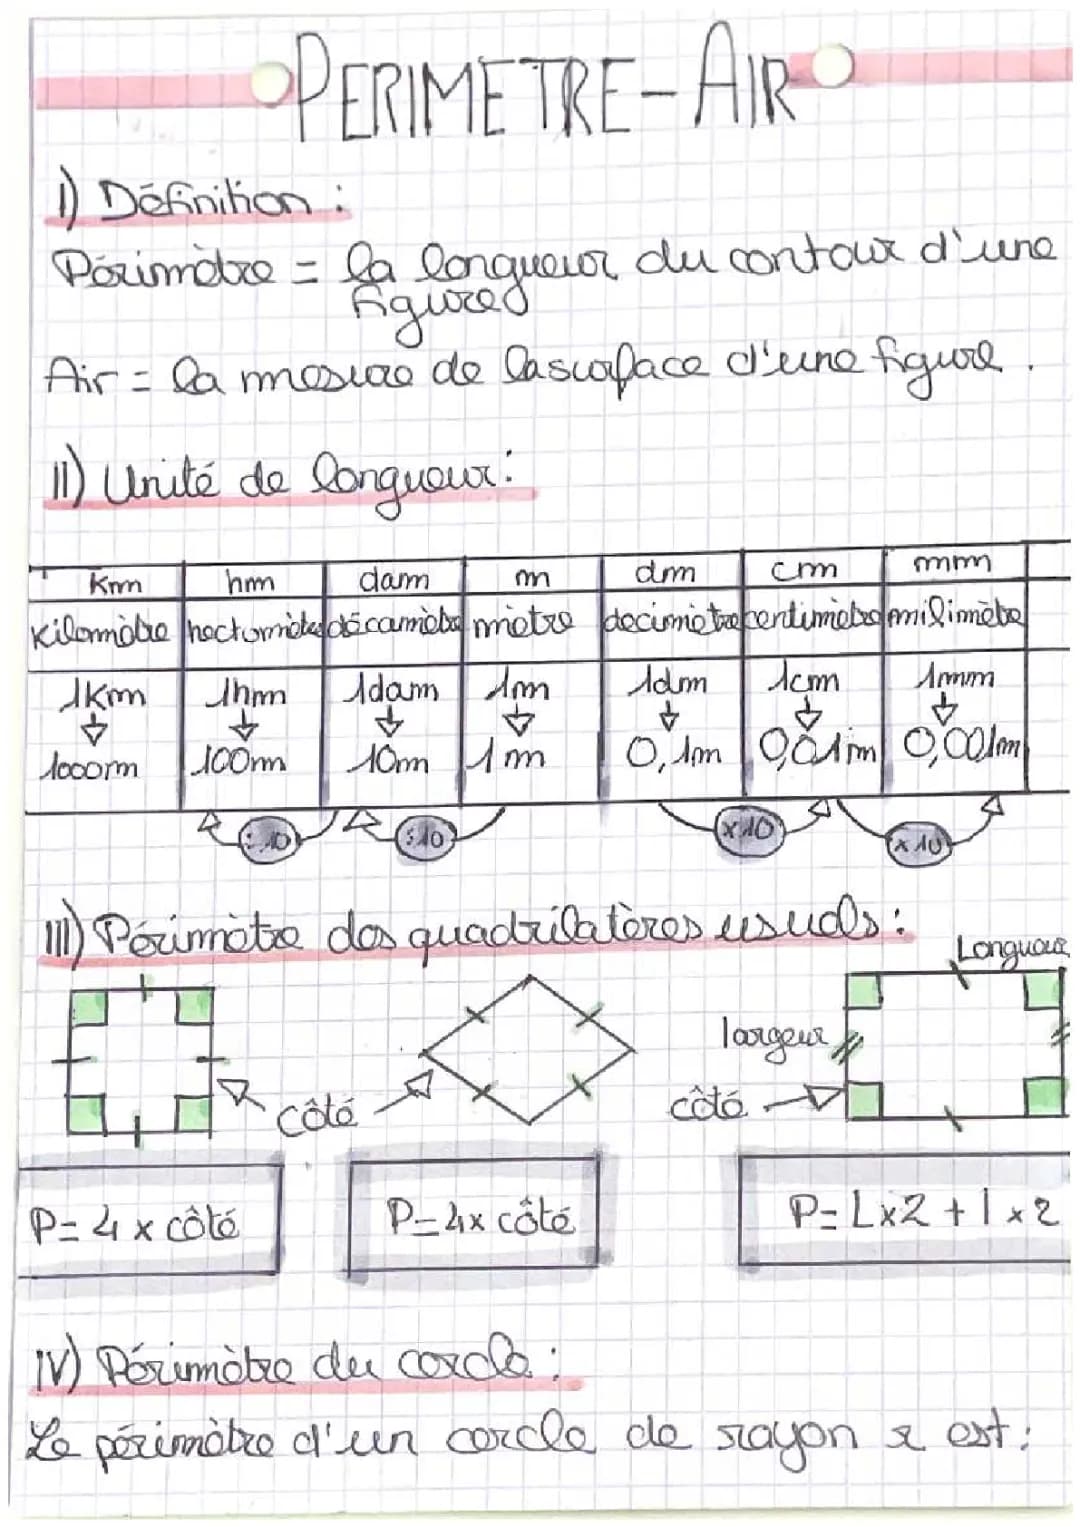 PERIMETRE-AIR
I) Définition :
Périmètre = la longueur du contour d'une
figure
Air = la mesure de la surface d'une figure.
II) Unité de longueur :
km hm dam m dm cm mm
kilomètre hectomètre décamètre mètre decimètre centimètre milimètre
1km 1hm 1dam 1m 1dm 1cm 1mm
1000m 100m 10m 1m 0,1m 0,01m 0,001m
:10 :10 x10 x10
III) Périmètre des quadrilatères usuels :
Longueur
largeur
côté côté
P= 4 x côté P= 4x côté P= L x 2 + l x 2
IV) Périmètre du cercle :
Le périmètre d'un cercle de rayon r est :